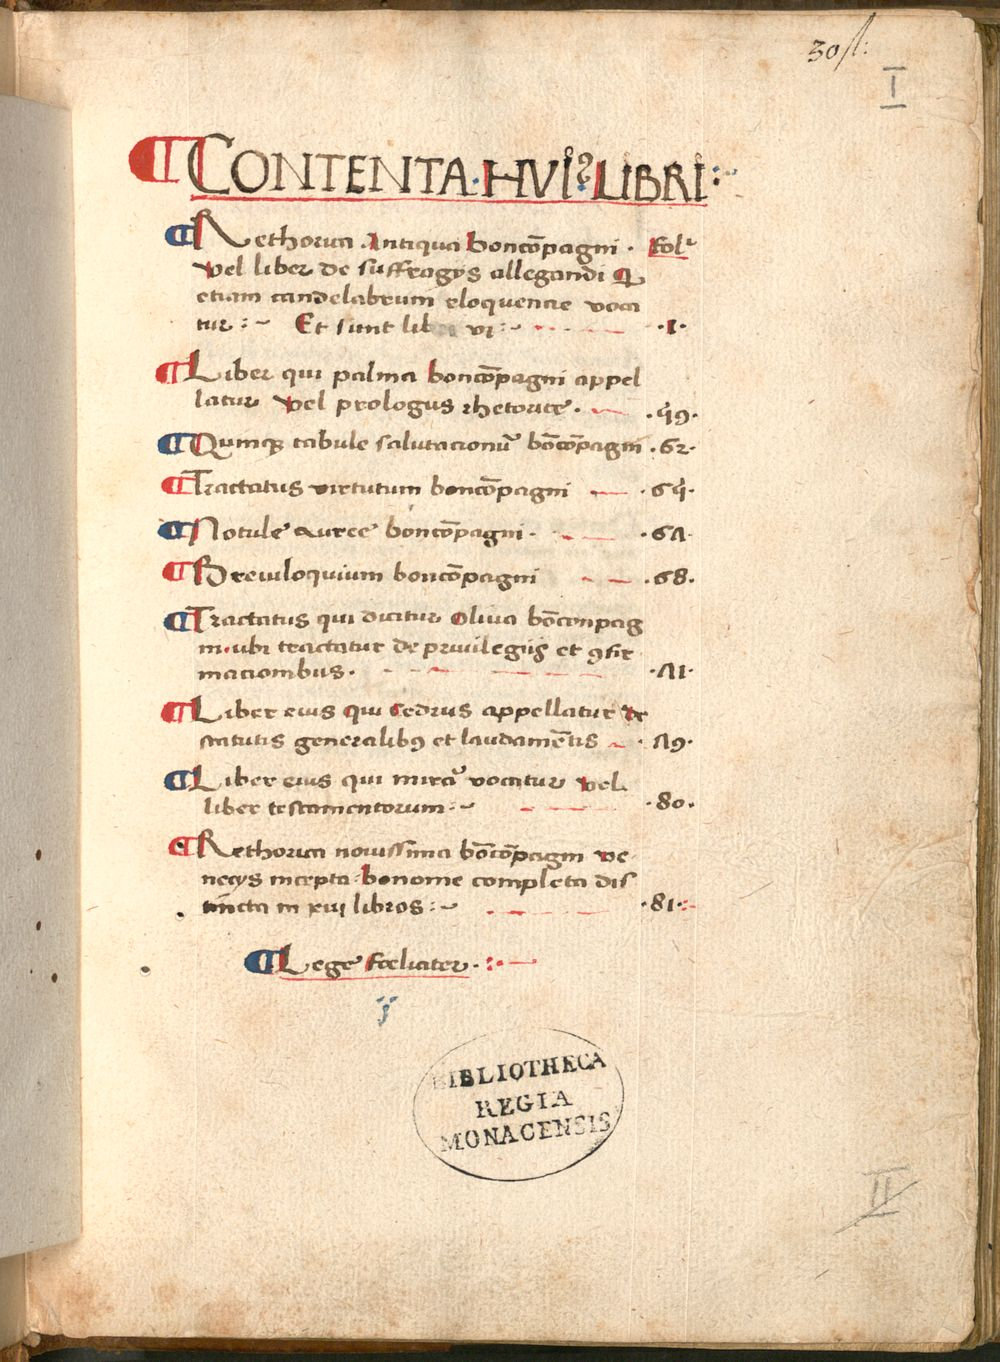 30 fl:
I
CONTENTA·HVIꝰ·LIBRI:
Rethorica Antiqua boncōpagni · Fol.
vel liber de suffragijs allegandi Q
etiam candelabrum eloquencie voca
tur :~ Et sunt lib vj :~ ·1·
Liber qui palma boncōpagni appel
latur vel prologus rhetorice · ·59·
Qumqꝫ tabule salutacionū bōcōpagni ·62·
Tractatus virtutum boncōpagni ·65·
Notule auree boncōpagni · ·67·
Breuiloquium boncōpagni ·68·
Tractatus qui dicitur Oliua bōconpag
ni·ubi tractatur de priuilegijs et ꝯfir
macionibus · ·71·
Liber eius qui Cedrus appellatur de
statutis generalibꝰ et laudamētis ·79·
Liber eius qui mirra vocatur vel
liber testamentorum :~ ·80·
Rethorica nouissima bōcōpagni ve-
necijs incepta·bonome completa dis
tincta in xvi libros :~ ·81·
Lege foeliciter · :·
BIBLIOTHECA
REGIA
MONACENSIS
II